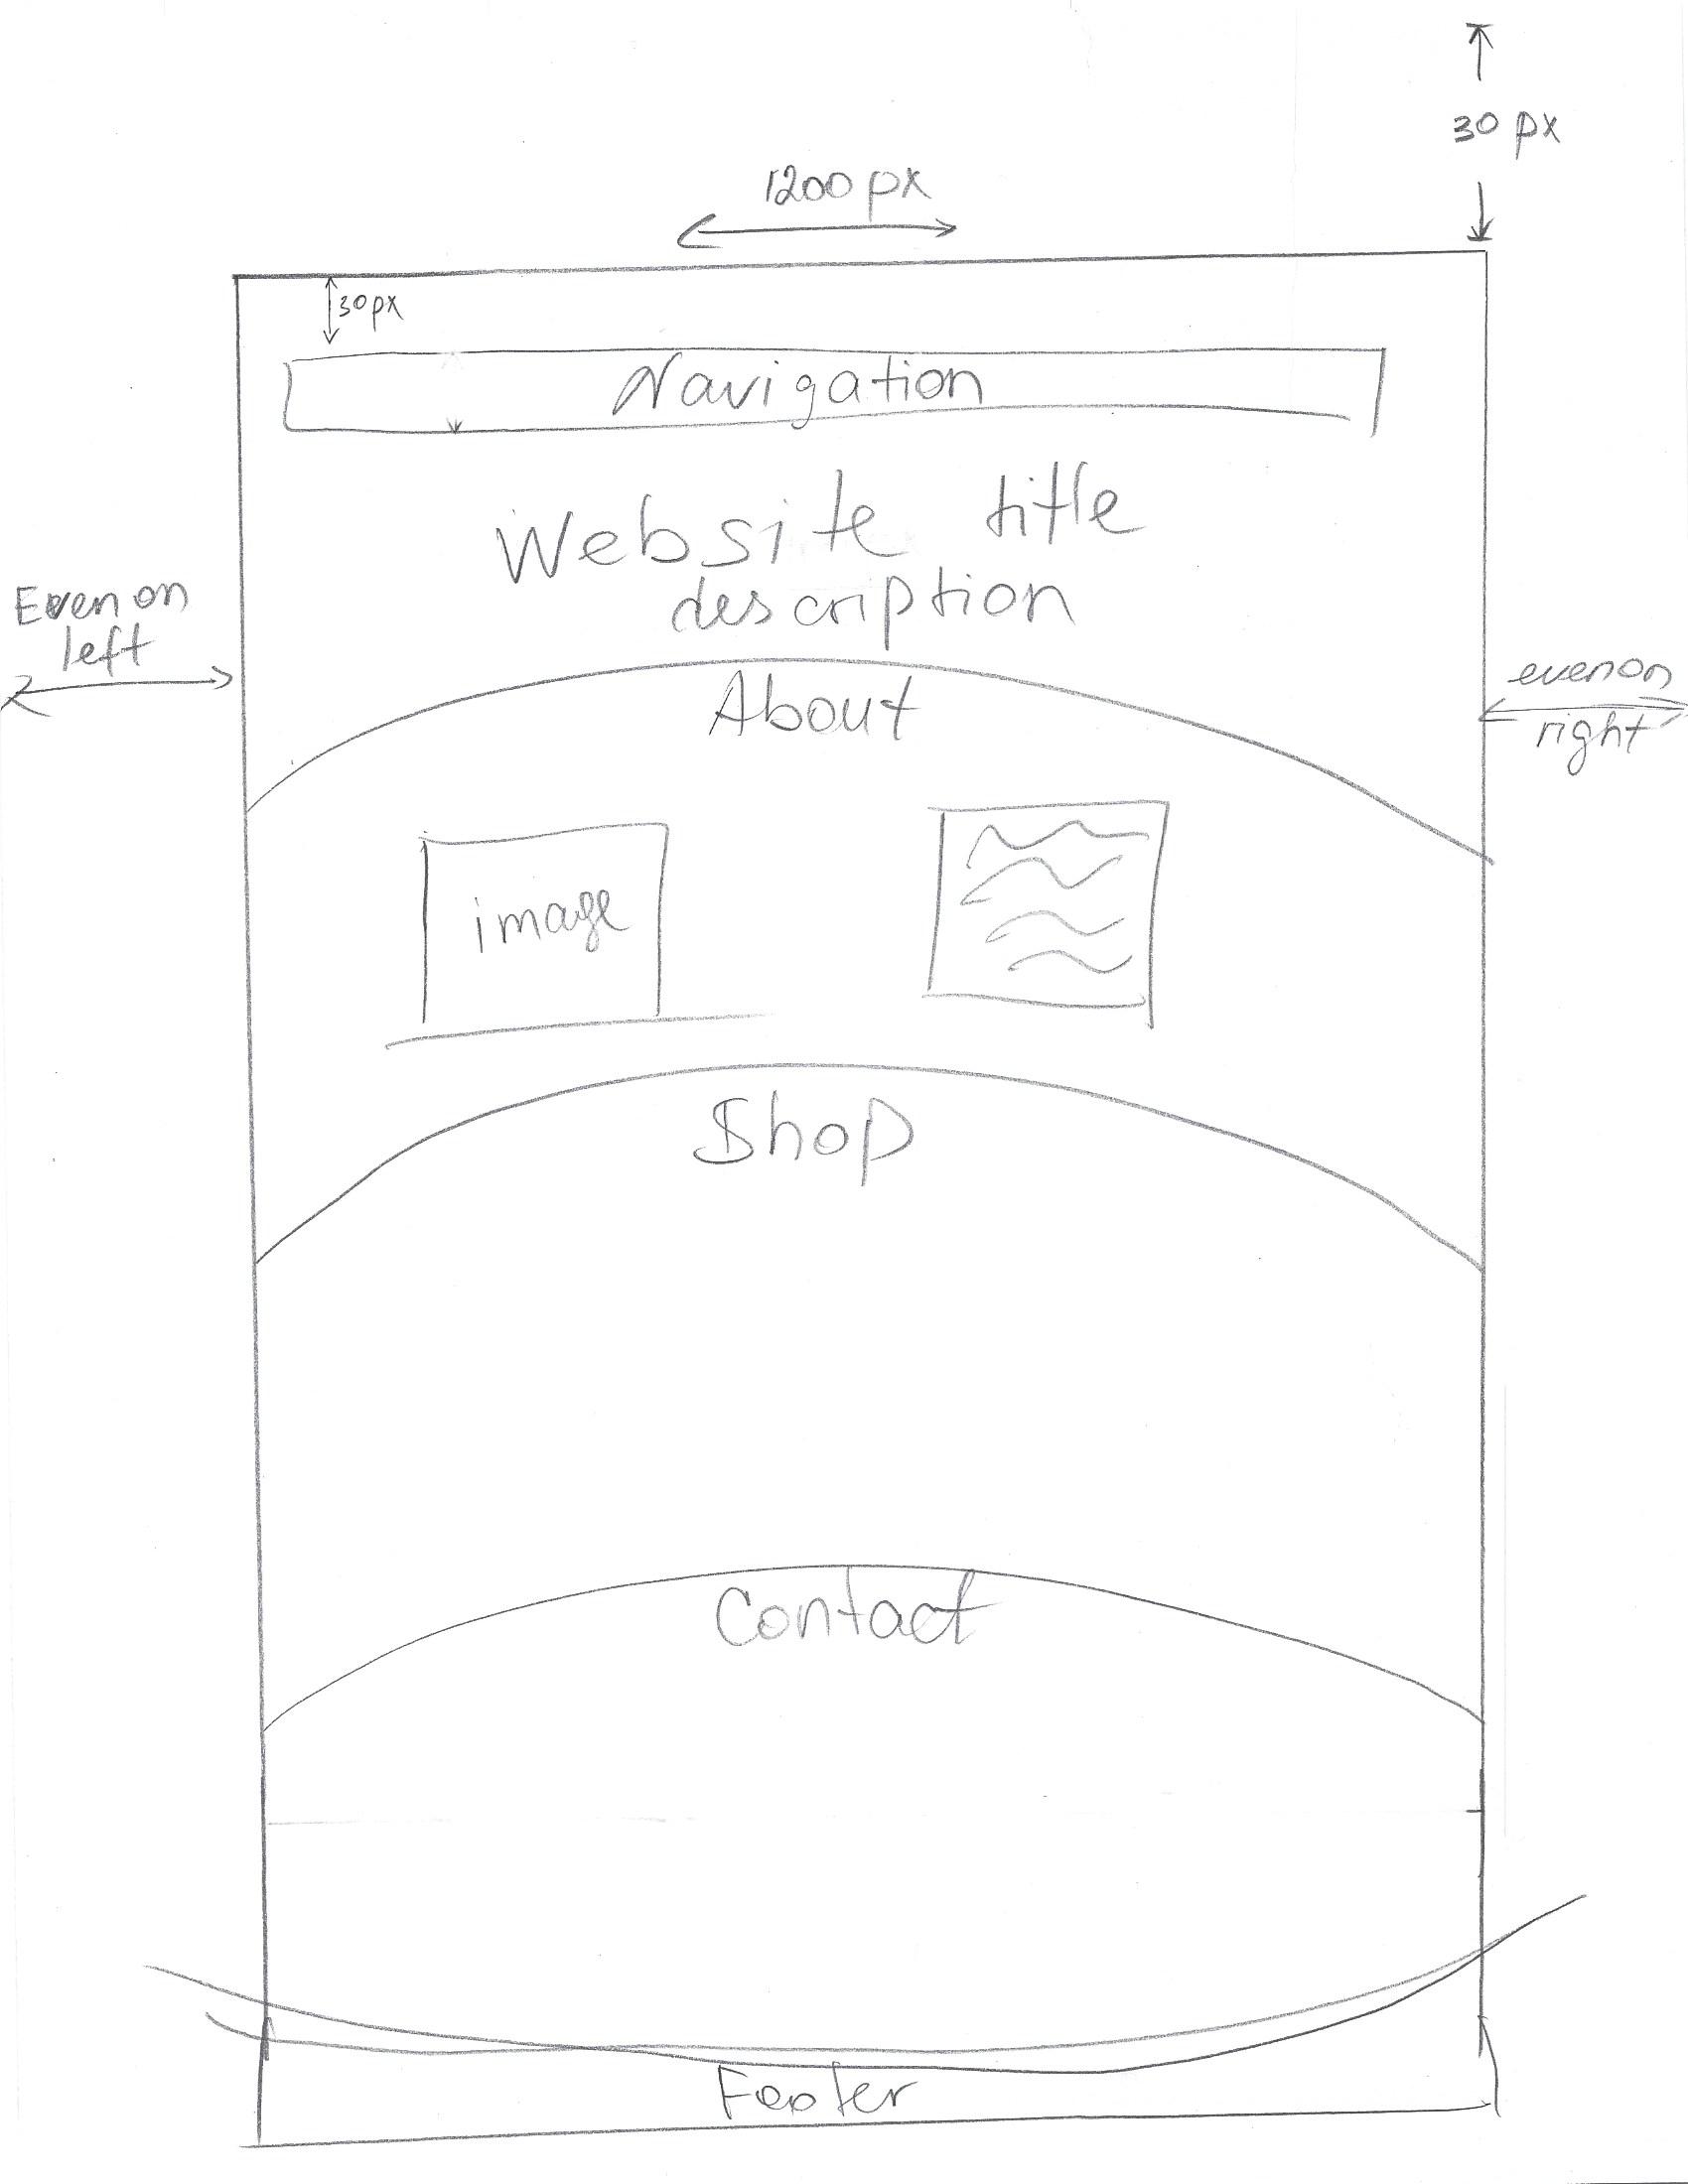 30 px
1200 px
30px
Navigation
Website title
description
Even on
left
About
even on
right
image
Shop
Contact
Footer